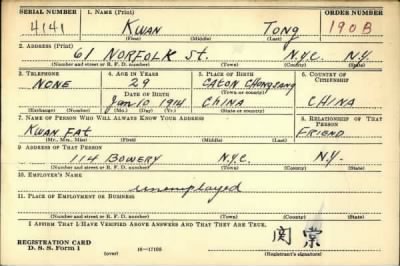 SERIAL NUMBER 1. NAME (Print) ORDER NUMBER
4141 KWAN TONG 190B
(First) (Middle) (Last)
2. ADDRESS (Print)
61 NORFOLK St. N.Y.C. N.Y.
(Number and street or R. F. D. number) (Town) (County) (State)
3. TELEPHONE 4. AGE IN YEARS 5. PLACE OF BIRTH 6. COUNTRY OF CITIZENSHIP
NONE 29
DATE OF BIRTH (Town or county)
Jan 10 1914 CHINA CHINA
(Exchange) (Number) (Mo.) (Day) (Yr.) (State or country)
7. NAME OF PERSON WHO WILL ALWAYS KNOW YOUR ADDRESS 8. RELATIONSHIP OF THAT PERSON
KWAN FAT FRIEND
(Mr., Mrs., Miss) (First) (Middle) (Last)
9. ADDRESS OF THAT PERSON
114 BOWERY N.Y.C. N.Y.
(Number and street or R. F. D. number) (Town) (County) (State)
10. EMPLOYER'S NAME
unemployed
11. PLACE OF EMPLOYMENT OR BUSINESS
(Number and street or R. F. D. number) (Town) (County) (State)
I AFFIRM THAT I HAVE VERIFIED ABOVE ANSWERS AND THAT THEY ARE TRUE.
REGISTRATION CARD
D. S. S. Form 1 (over) 16—17105 (Registrant's signature)